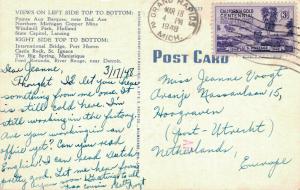 VIEWS ON LEFT SIDE TOP TO BOTTOM:
Pointe Aux Barques, near Bad Axe
Northern Michigan Copper Mine
Windmill Park, Holland
State Capitol, Lansing
RIGHT SIDE TOP TO BOTTOM:
International Bridge, Port Huron
Castle Rock, St. Ignace
The Big Spring, Manistique
Ford Rotunda, River Rouge, near Detroit.
GRAND RAPIDS
MAR 18
PM
1948
MICH.
CALIFORNIA GOLD
CENTENNIAL
3¢
POST CARD
3/17/48
Dear Jeanne,
Thought I'd let you have
something from me once. It
is still cold here. I'm
still working in the factory.
Are you working in an
office yet? Can you read
English? I can read Dutch
pretty good. Let me hear from
Miss Jeanne Voogt
Oranje Nassaulaan 15,
Hoograven
(post-Utrecht)
Netherlands,
Europe